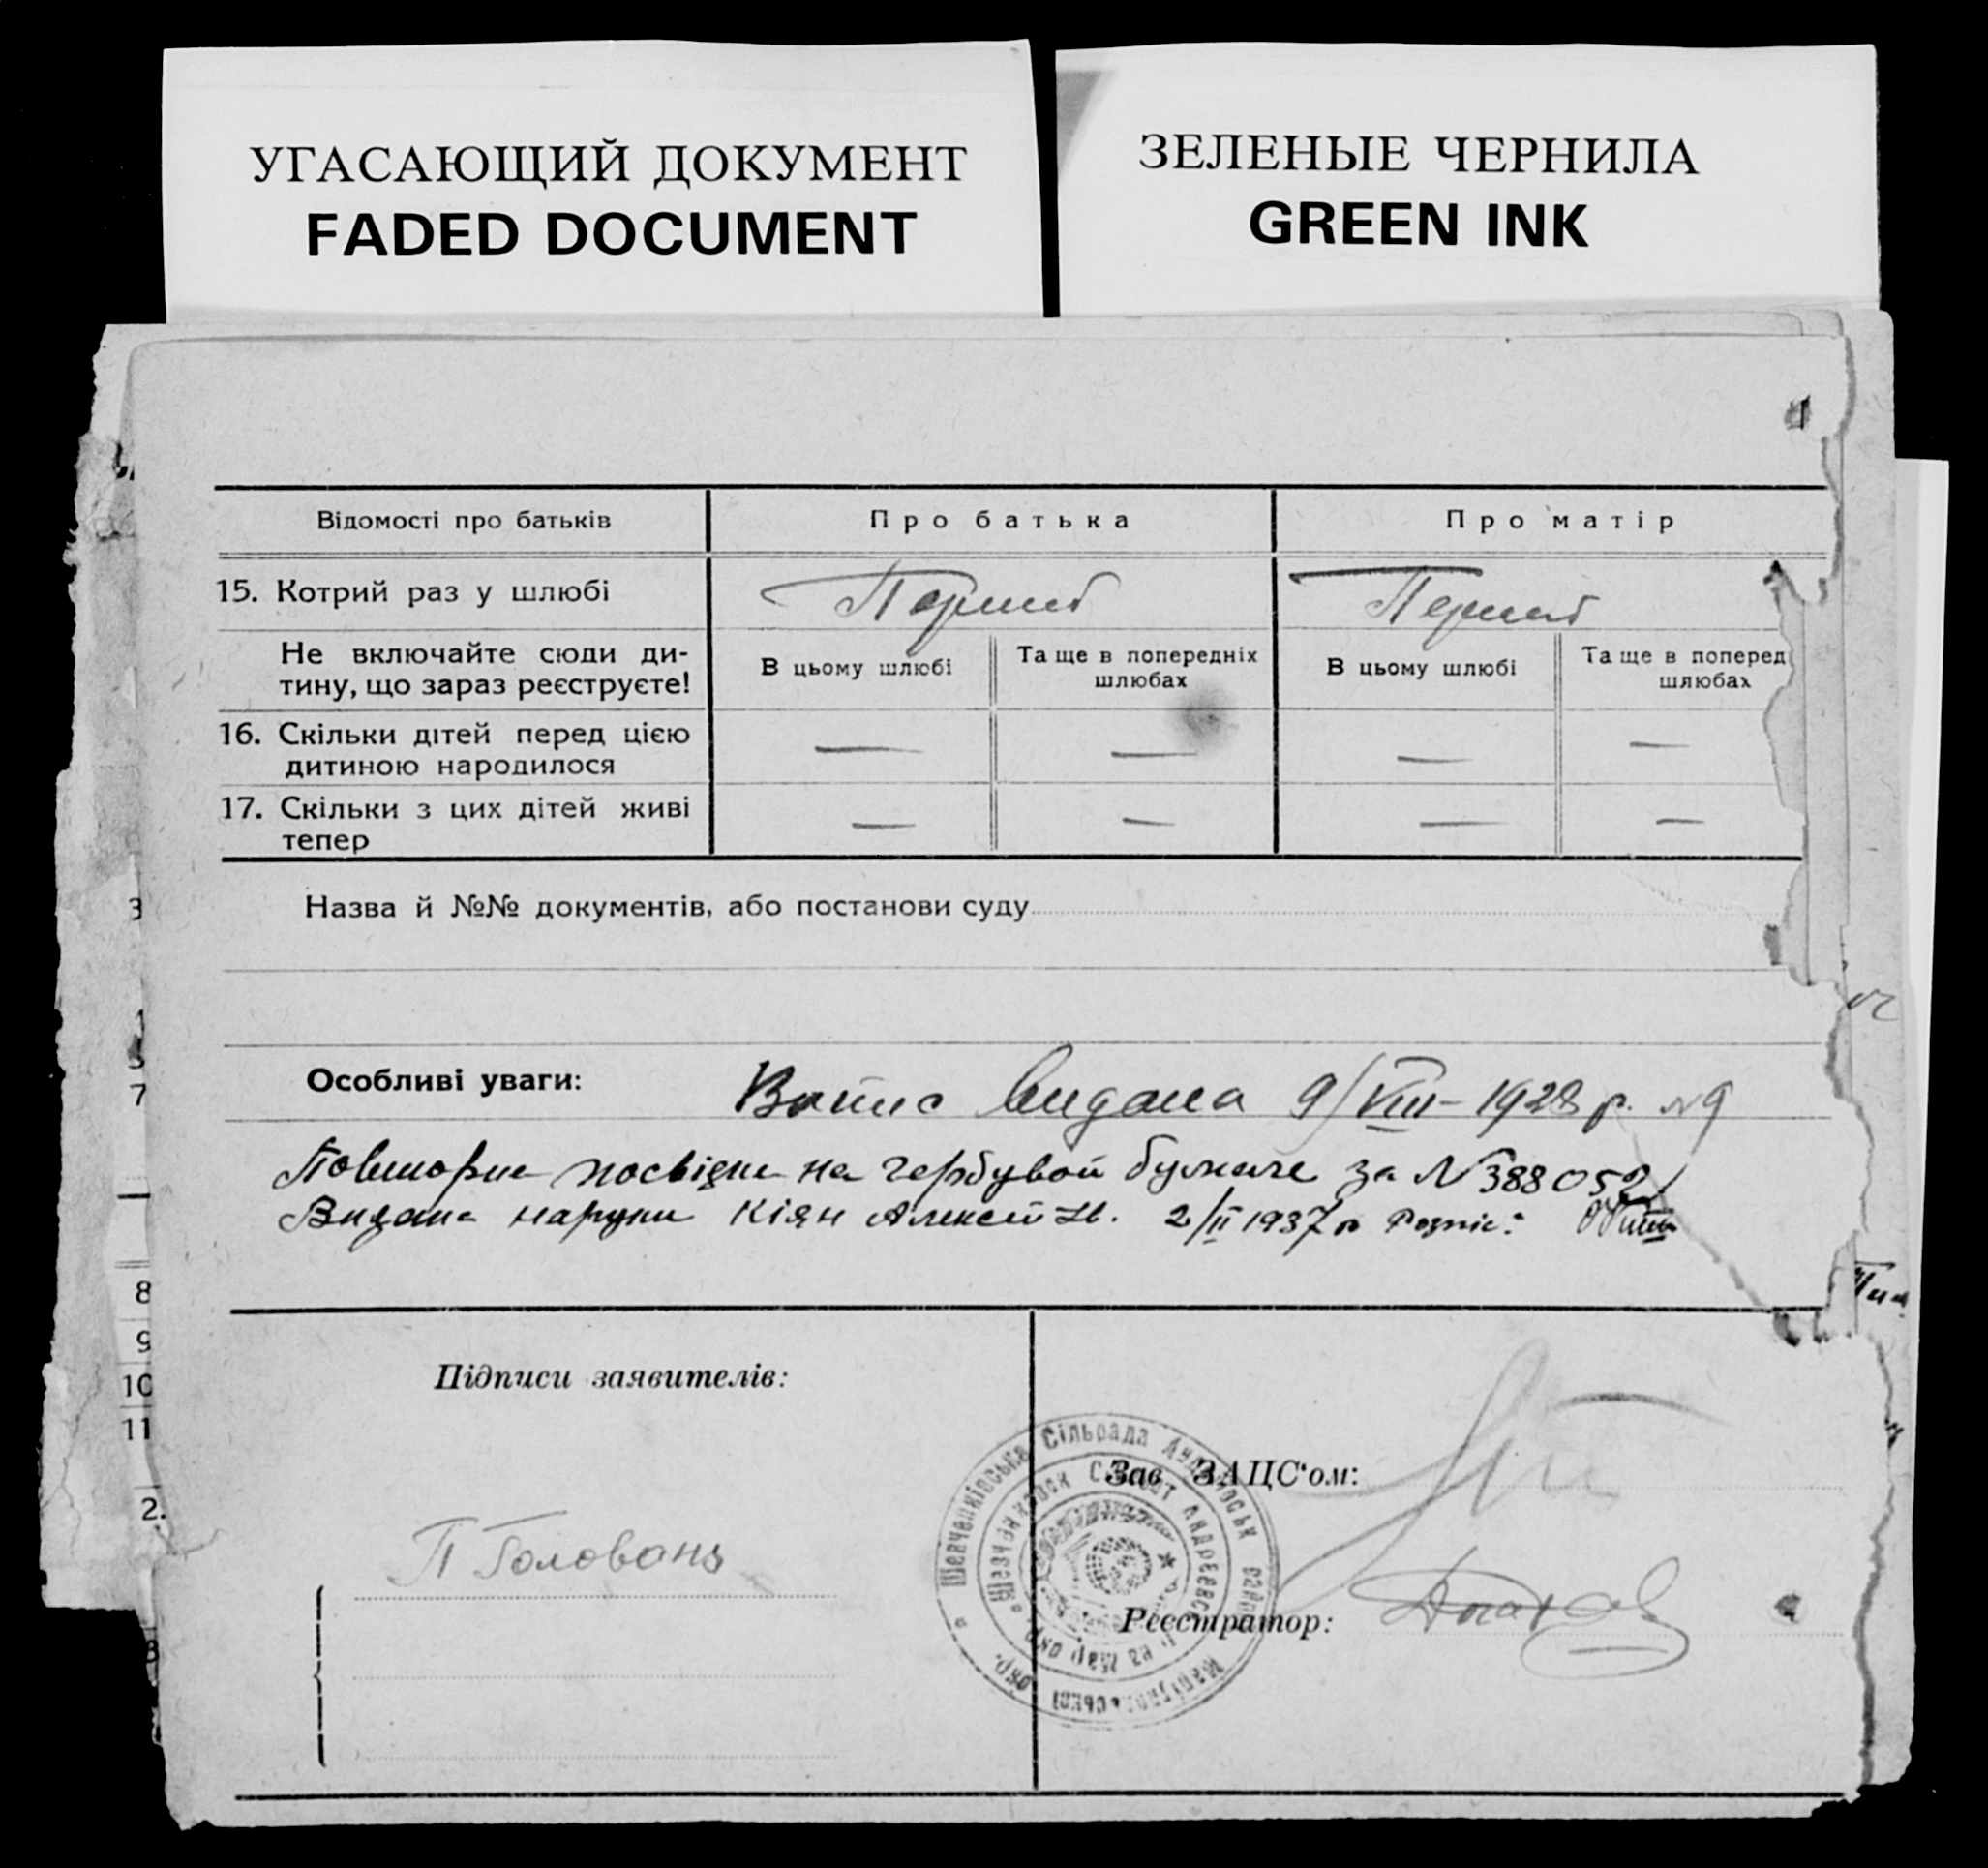 УГАСАЮЩИЙ ДОКУМЕНТ
FADED DOCUMENT
ЗЕЛЕНЫЕ ЧЕРНИЛА
GREEN INK
1
Відомості про батьків
Про батька
Про матір
15. Котрий раз у шлюбі
Перший
Перший
Не включайте сюди ди-
тину, що зараз реєструєте!
В цьому шлюбі
Та ще в попередніх
шлюбах
В цьому шлюбі
Та ще в поперед
шлюбах
16. Скільки дітей перед цією
дитиною народилося
— — — —
17. Скільки з цих дітей живі
тепер
— — — —
Назва й №№ документів, або постанови суду
Особливі уваги:
Видана 9/VIII-1928 р. №9
посвідка на гербувой бумаге за № 388052
Видана наруки Кіян Алексей 2/II 1937 Розпіс:
Підписи заявителів:
Зав. ЗАЦС'ом:
П Головань
Реєстратор:
Шевченківська Сільрада
3
7
8
9
10
11
2.